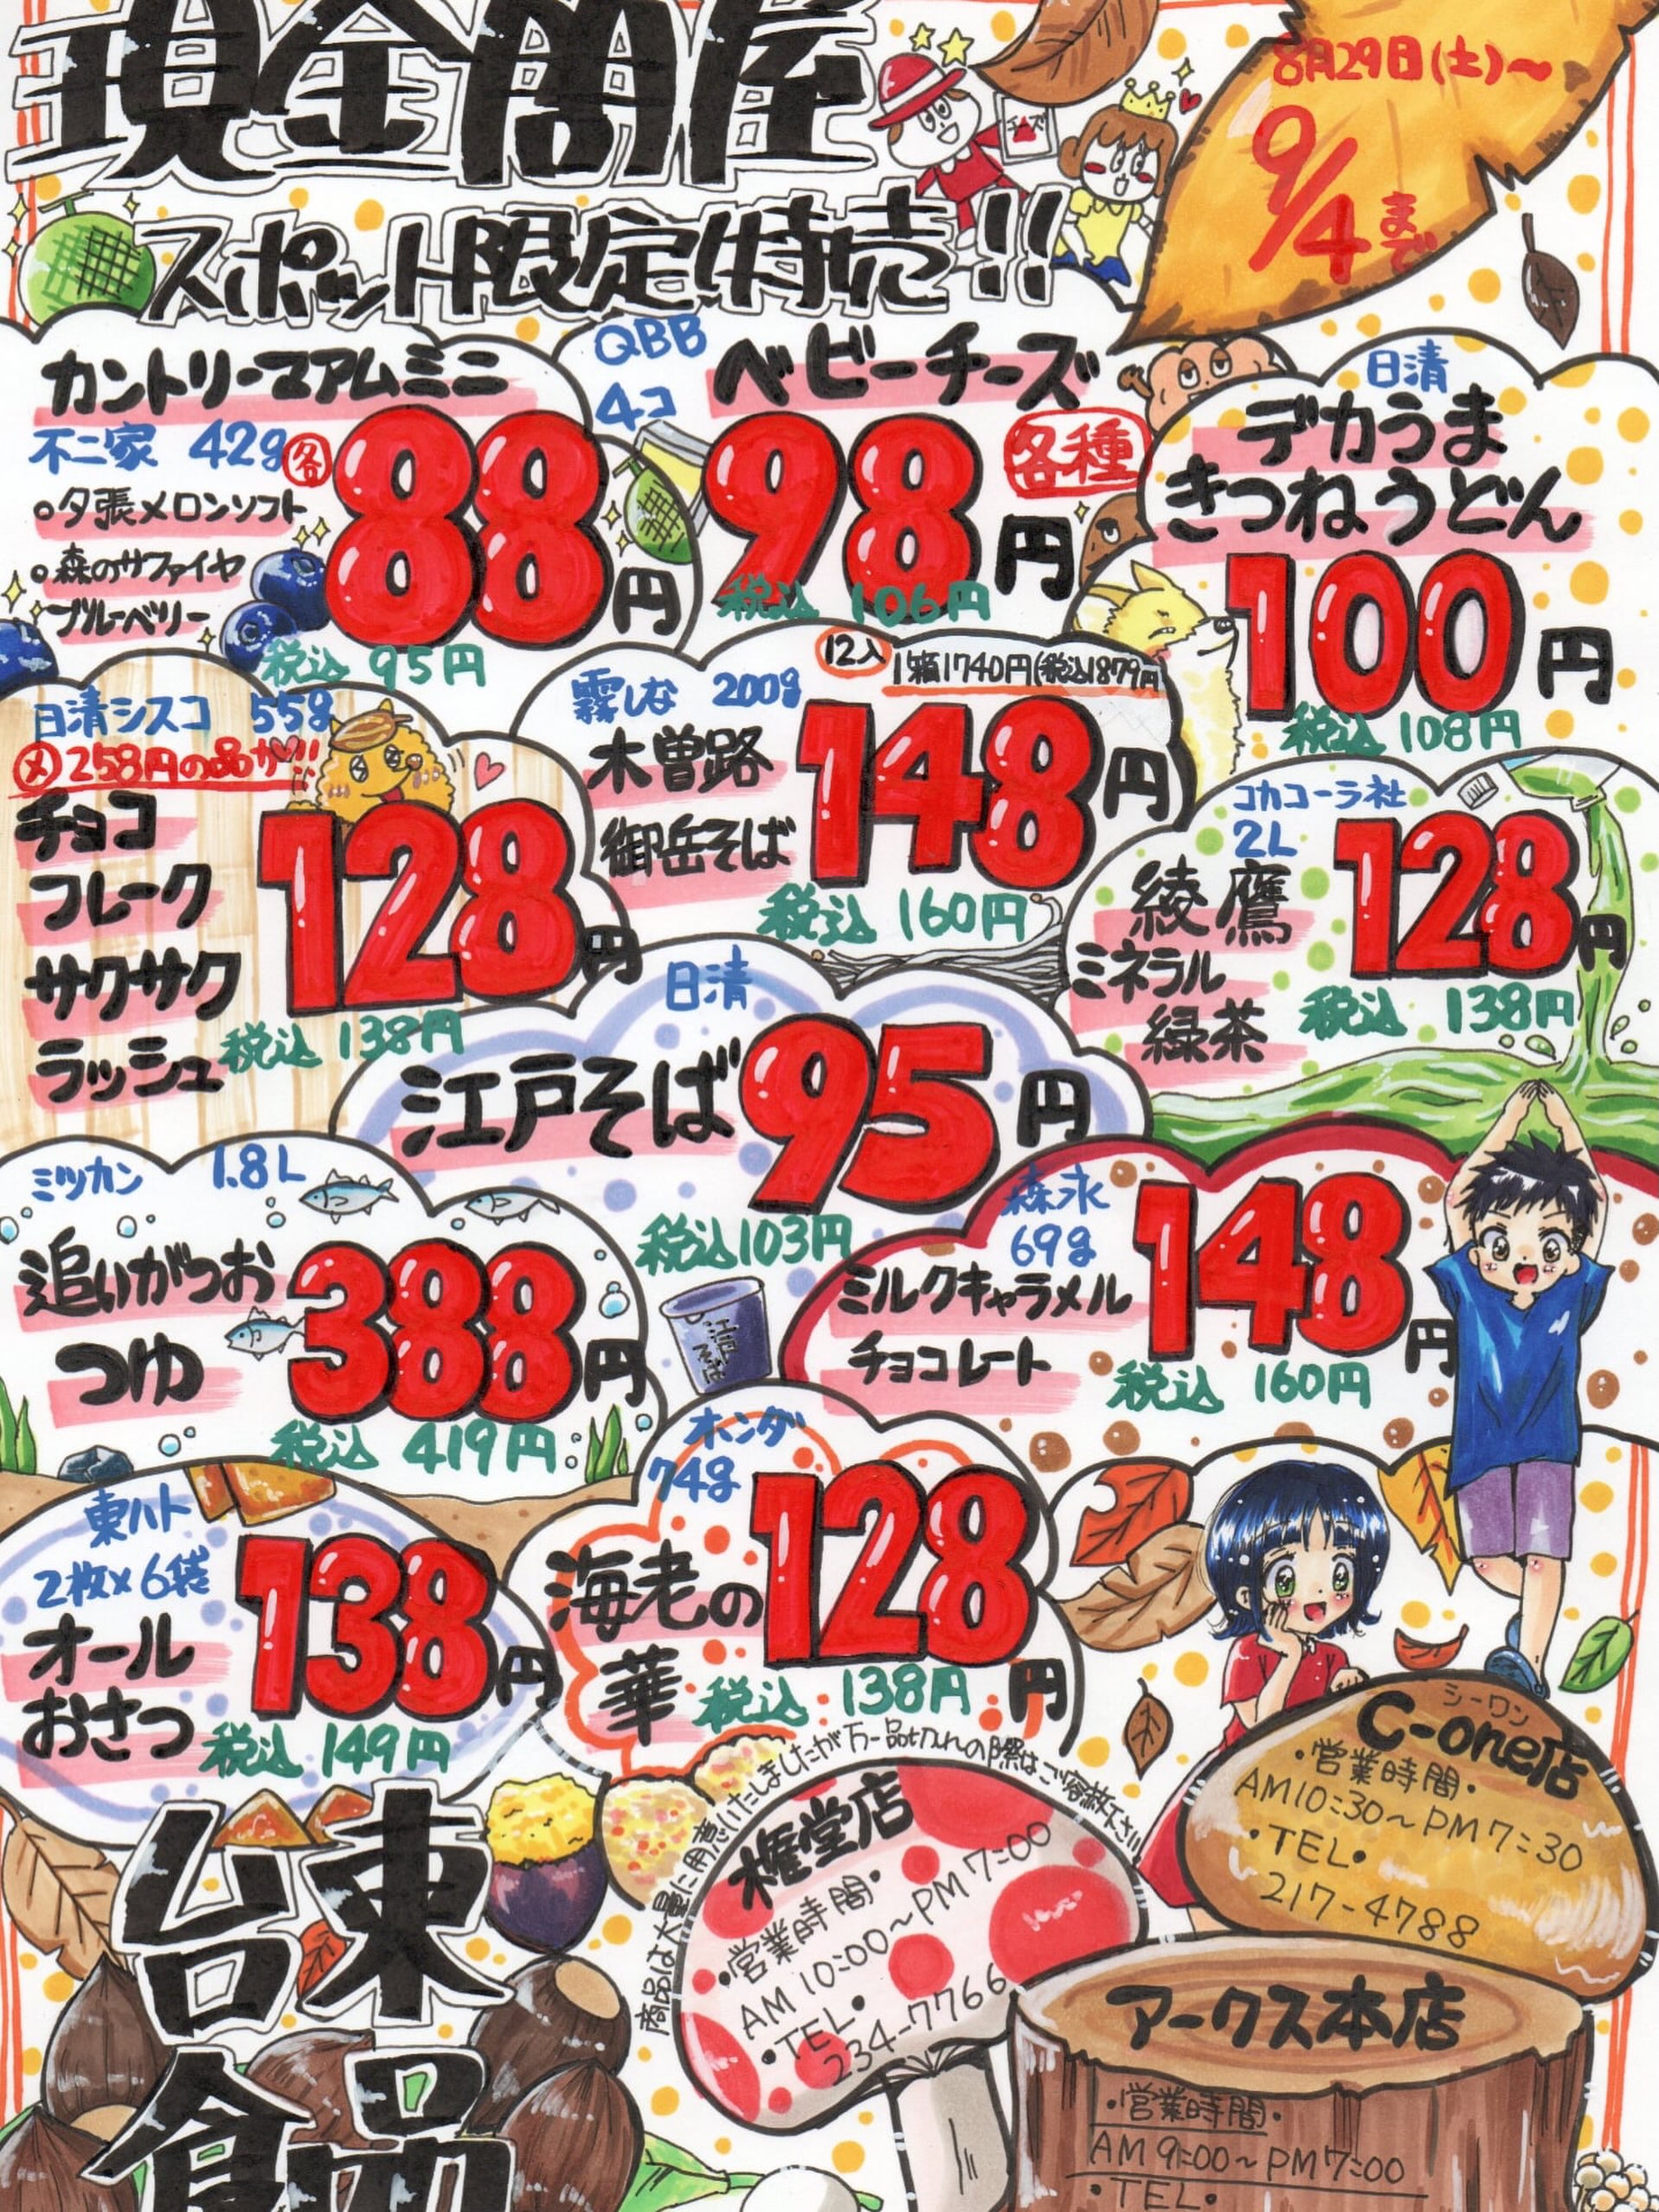 現金問屋
8月29日(土)〜
9/4まで
スポット限定特売!!
チーズ
カントリーマアムミニ
不二家 42g 各
。夕張メロンソフト
。森のサファイヤ
ブルーベリー
88円
税込 95円
QBB
4コ
ベビーチーズ
98円
各種
税込 106円
日清
デカうま
きつねうどん
100円
税込 108円
日清シスコ 55g
メ 258円の品が!!
チョコ
フレーク
サクサク
ラッシュ
128円
税込 138円
霧しな 200g
12入 1箱1740円(税込1879円
木曽路
御岳そば
148円
税込 160円
コカコーラ社
2L
綾鷹
ミネラル
緑茶
128円
税込 138円
日清
江戸そば
95円
税込103円
ミツカン 1.8L
追いがつお
つゆ
388円
税込 419円
江戸そば
森永
69g
ミルクキャラメル
チョコレート
148円
税込 160円
東ハト
2枚×6袋
オール
おさつ
138円
税込 149円
ホンダ
74g
海老の
華
128円
税込 138円
商品は大量に用意いたしましたが万一品切れの際はご容赦下さい!!
台東
食品
権堂店
・営業時間・
AM 10:00〜PM 7:00
・TEL・
234-7766
シーワン
C-one店
・営業時間・
AM10:30〜PM7:30
・TEL・
217-4788
アークス本店
・営業時間・
AM 9:00〜PM 7:00
・TEL・